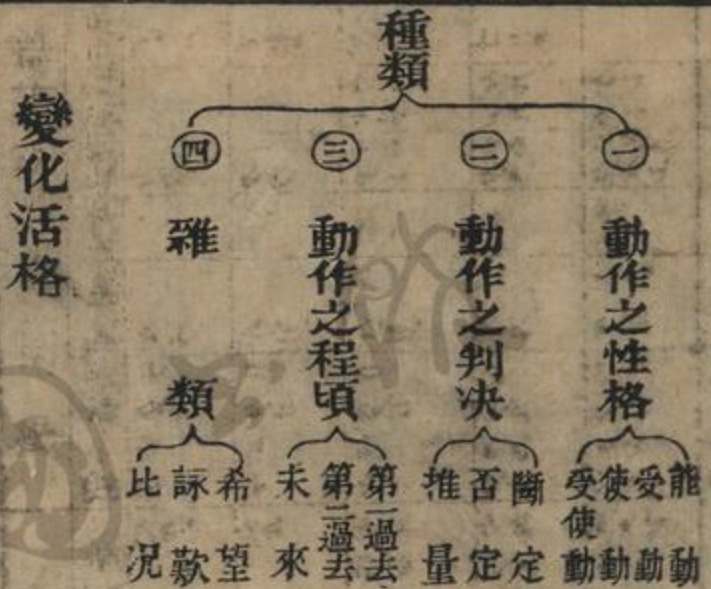 種類
㊀ 動作之性格
能動
受動
使動
受使動
㊁ 動作之判决
斷定
否定
推量
㊂ 動作之程頃
第一過去
第二過去
未來
㊃ 雜類
希望
詠歎
比况
變化活格